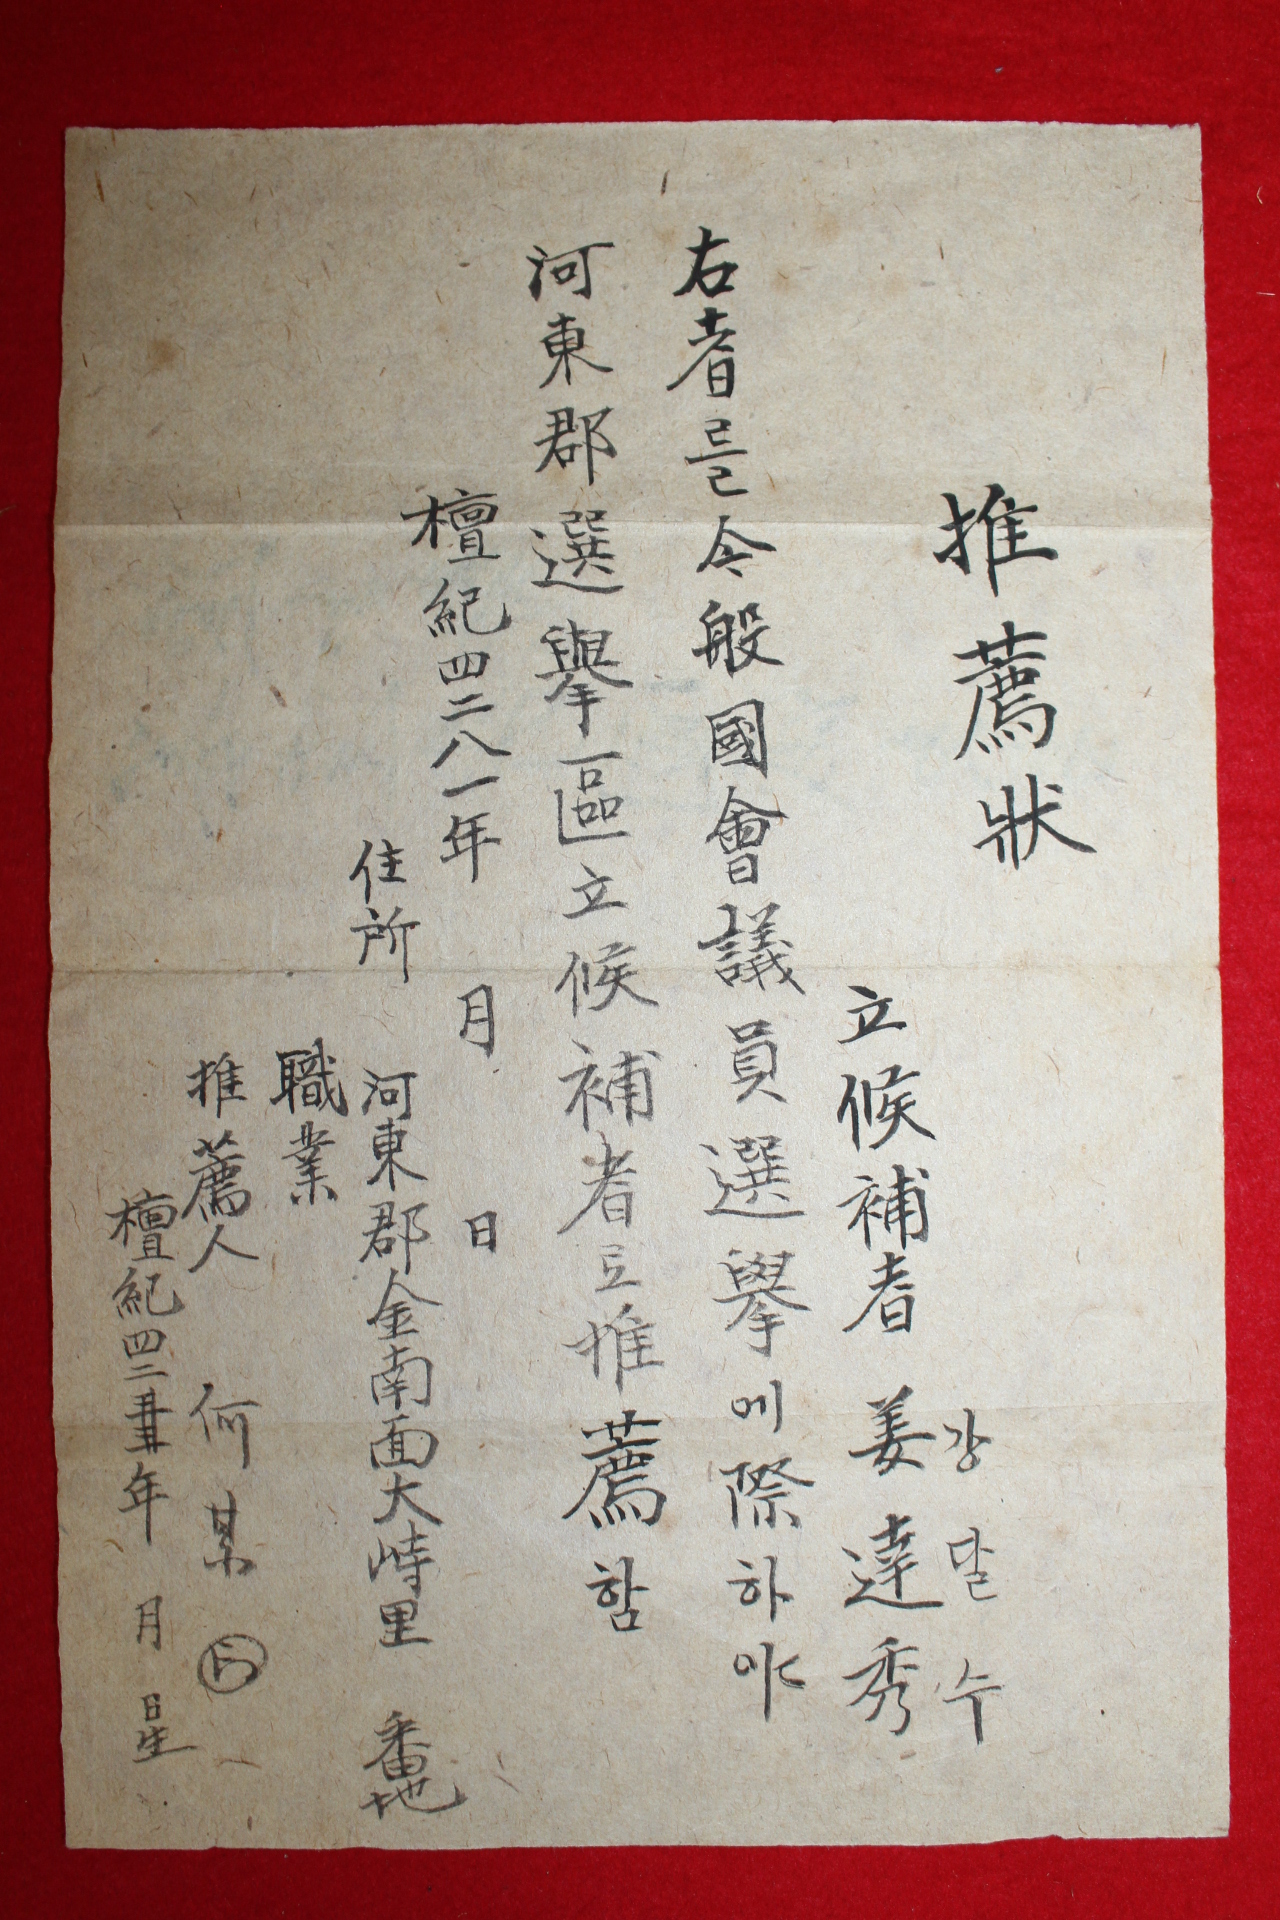 推薦狀
강달수
立候補者 姜達秀
右者를 今般國會議員選擧에際하야
河東郡選擧區立候補者로推薦함
檀紀四二八一年 月 日
住所 河東郡金南面大峙里 番地
職業
推薦人 何某 ㊞
檀紀四二 年 月 日生